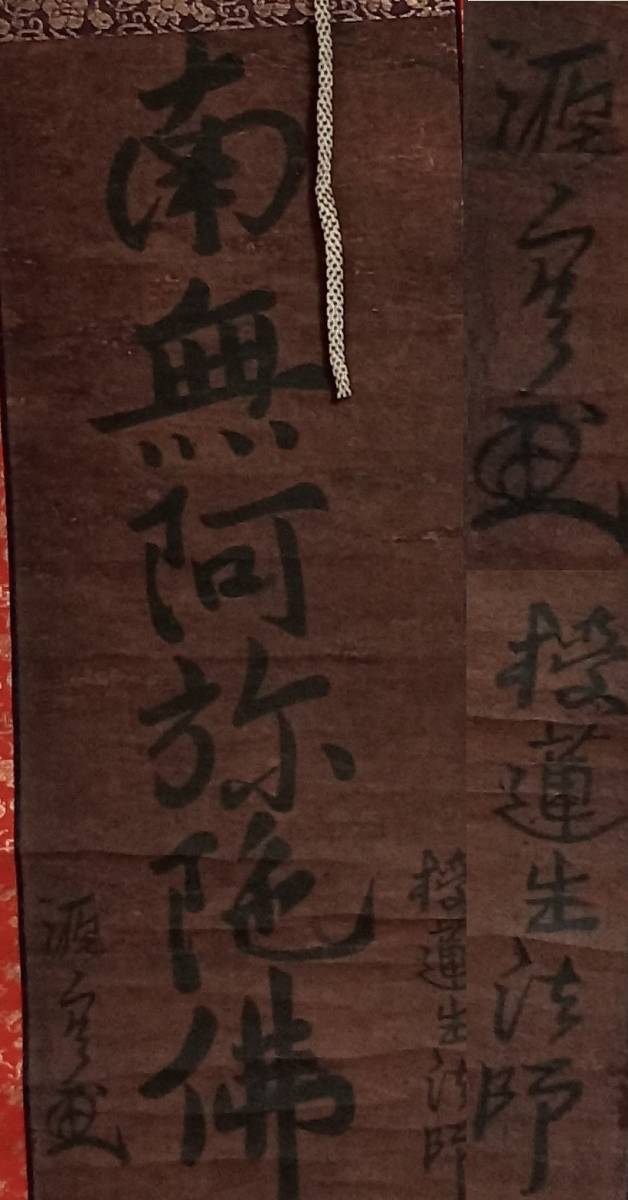 授蓮生法師
南無阿弥陀佛
源空
源空
授蓮生法師